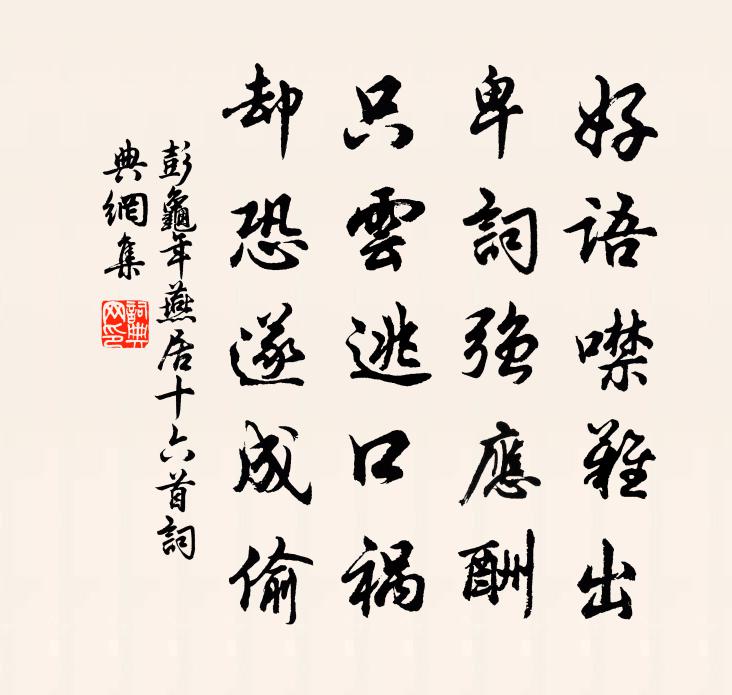 好語噤難出
卑詞強應酬
只雲逃口禍
却恐遂成偷
彭龜年燕居十六首詞
典網集
詞典
网印